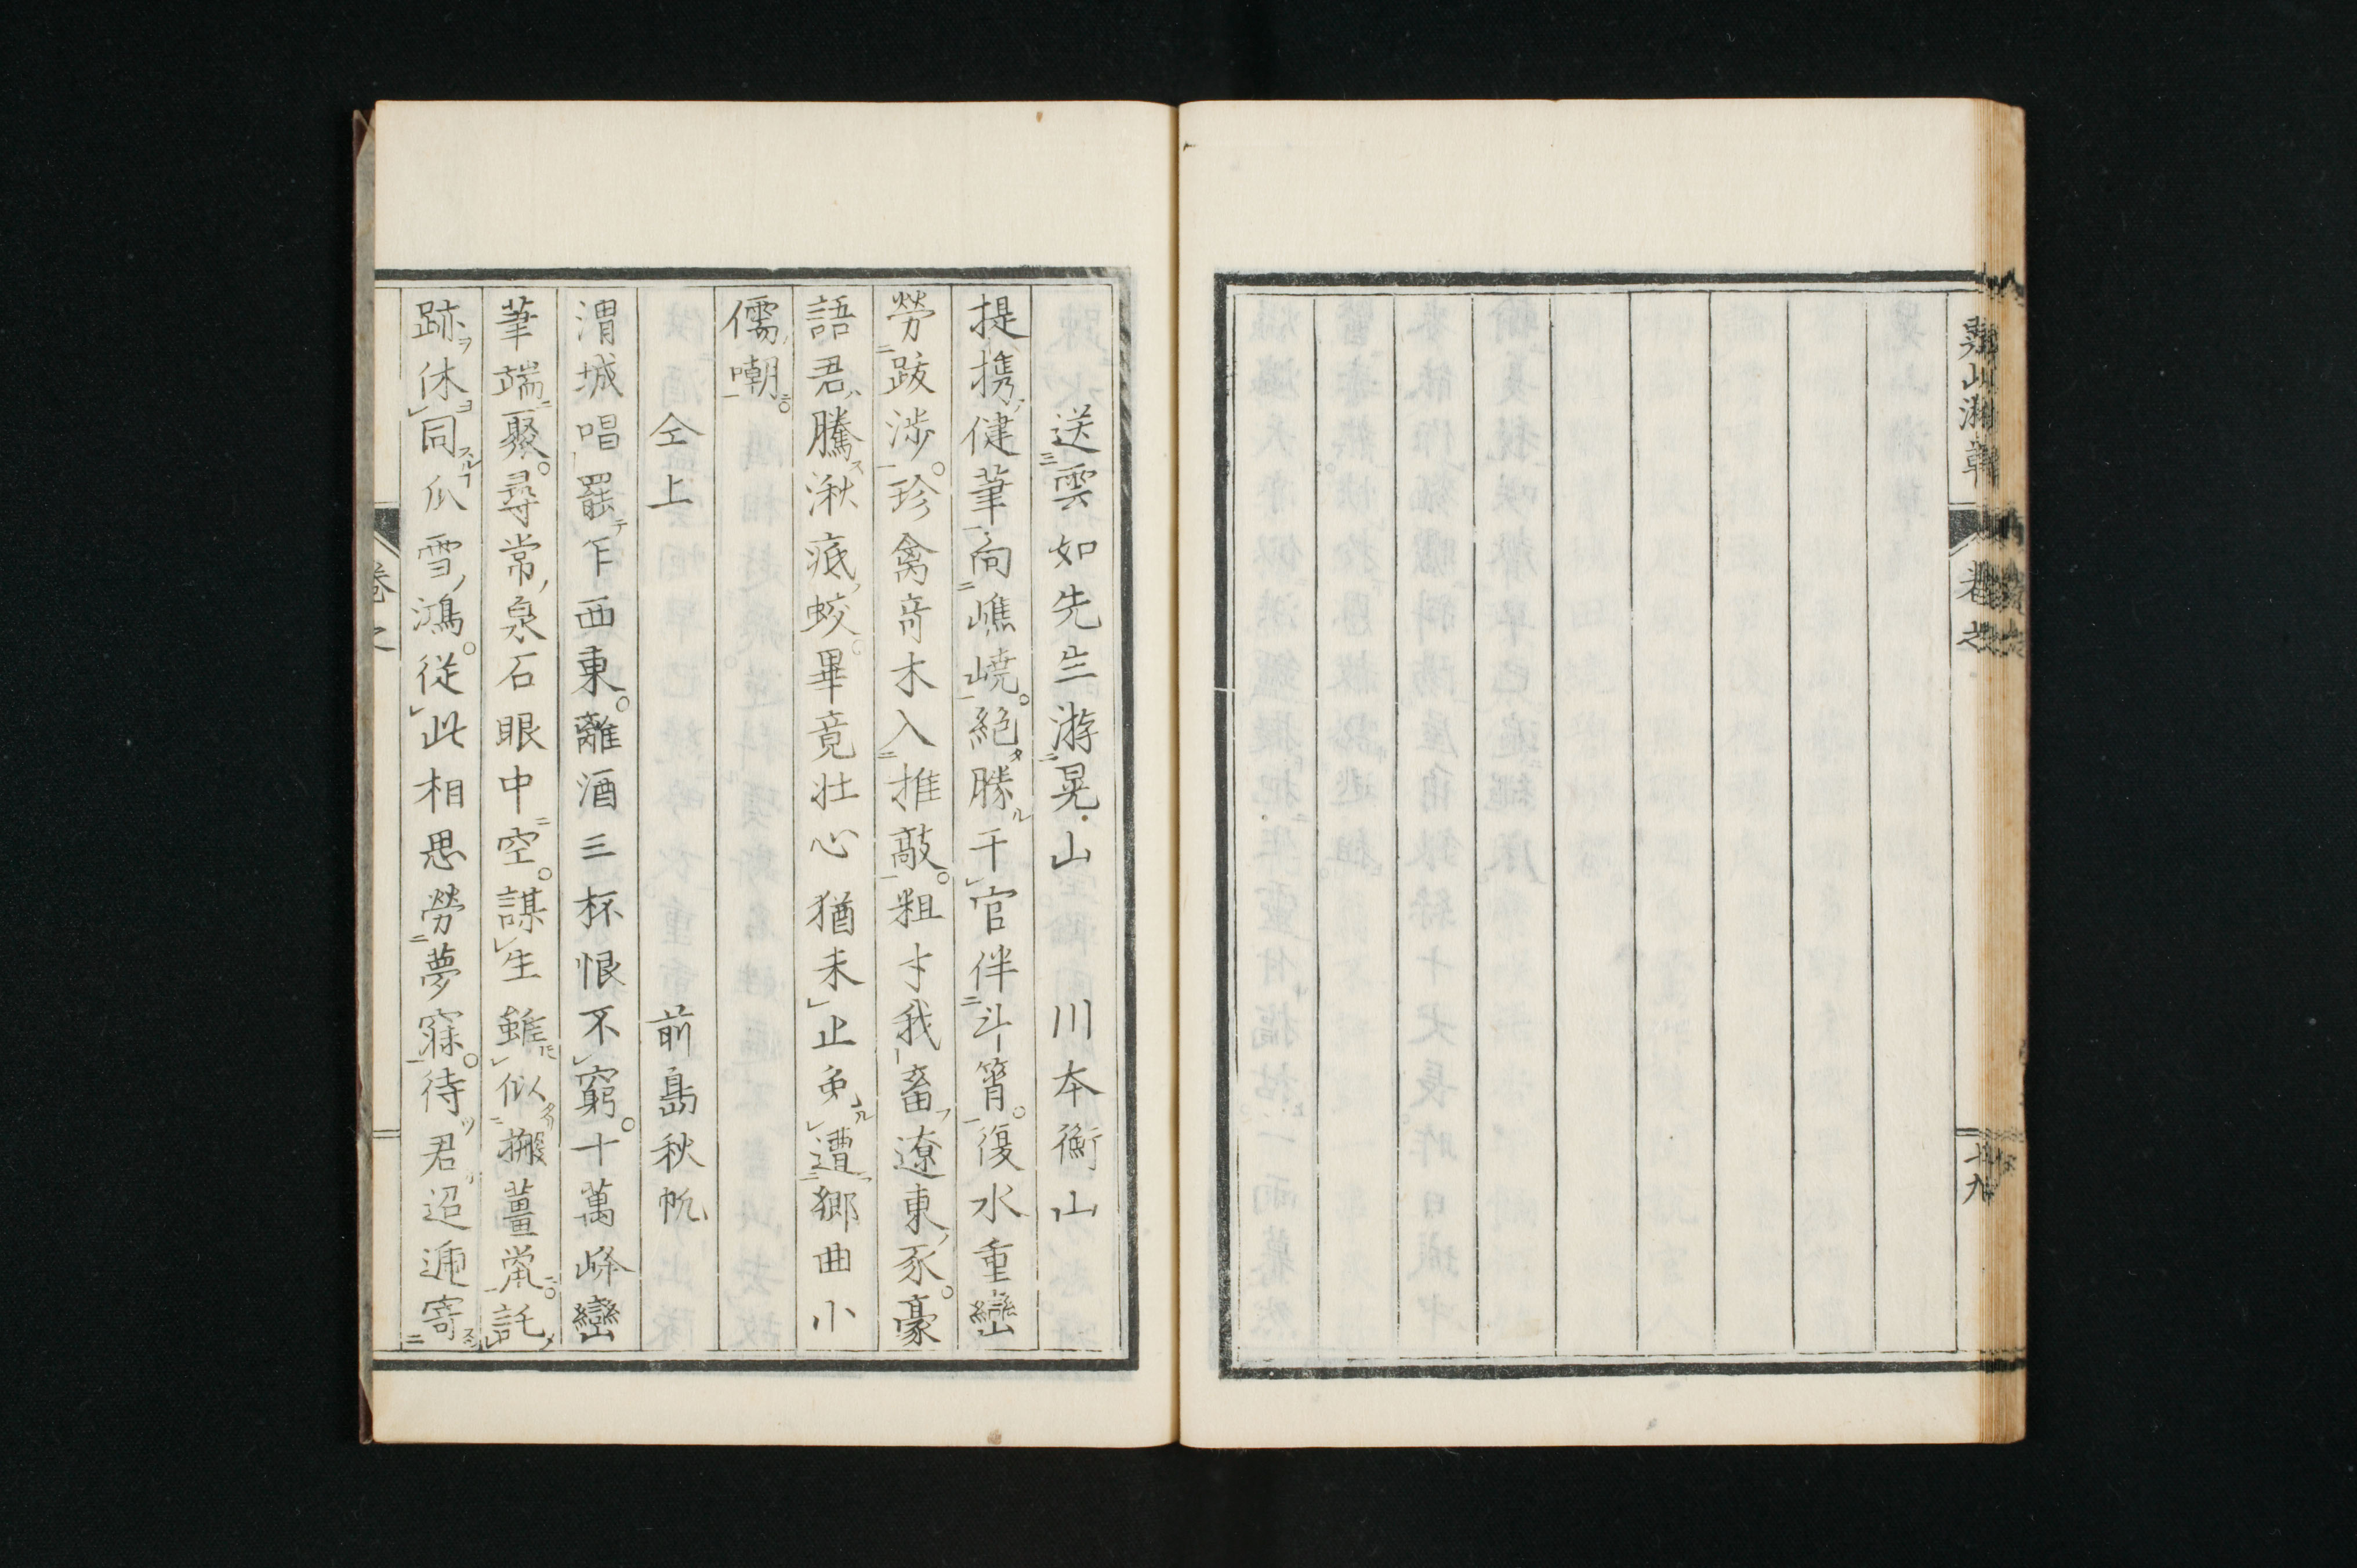 卷之
十九
送雲如先生游晃山 川本衡山
提携健筆向嶕嶢絶勝干官伴斗筲復水重巒
勞跋渉珍禽奇木入推敲粗才我畜遼東豕豪
語君騰湫底蛟畢竟壮心猶未止免遭郷曲小
儒嘲
仝上 前島秋帆
渭城唱罷乍西東離酒三杯恨不窮十萬峰巒
筆端聚尋常泉石眼中空謀生雖似搬薑鼠託
跡休同爪雪鴻從此相思勞夢寐待君迢遞寄
卷之